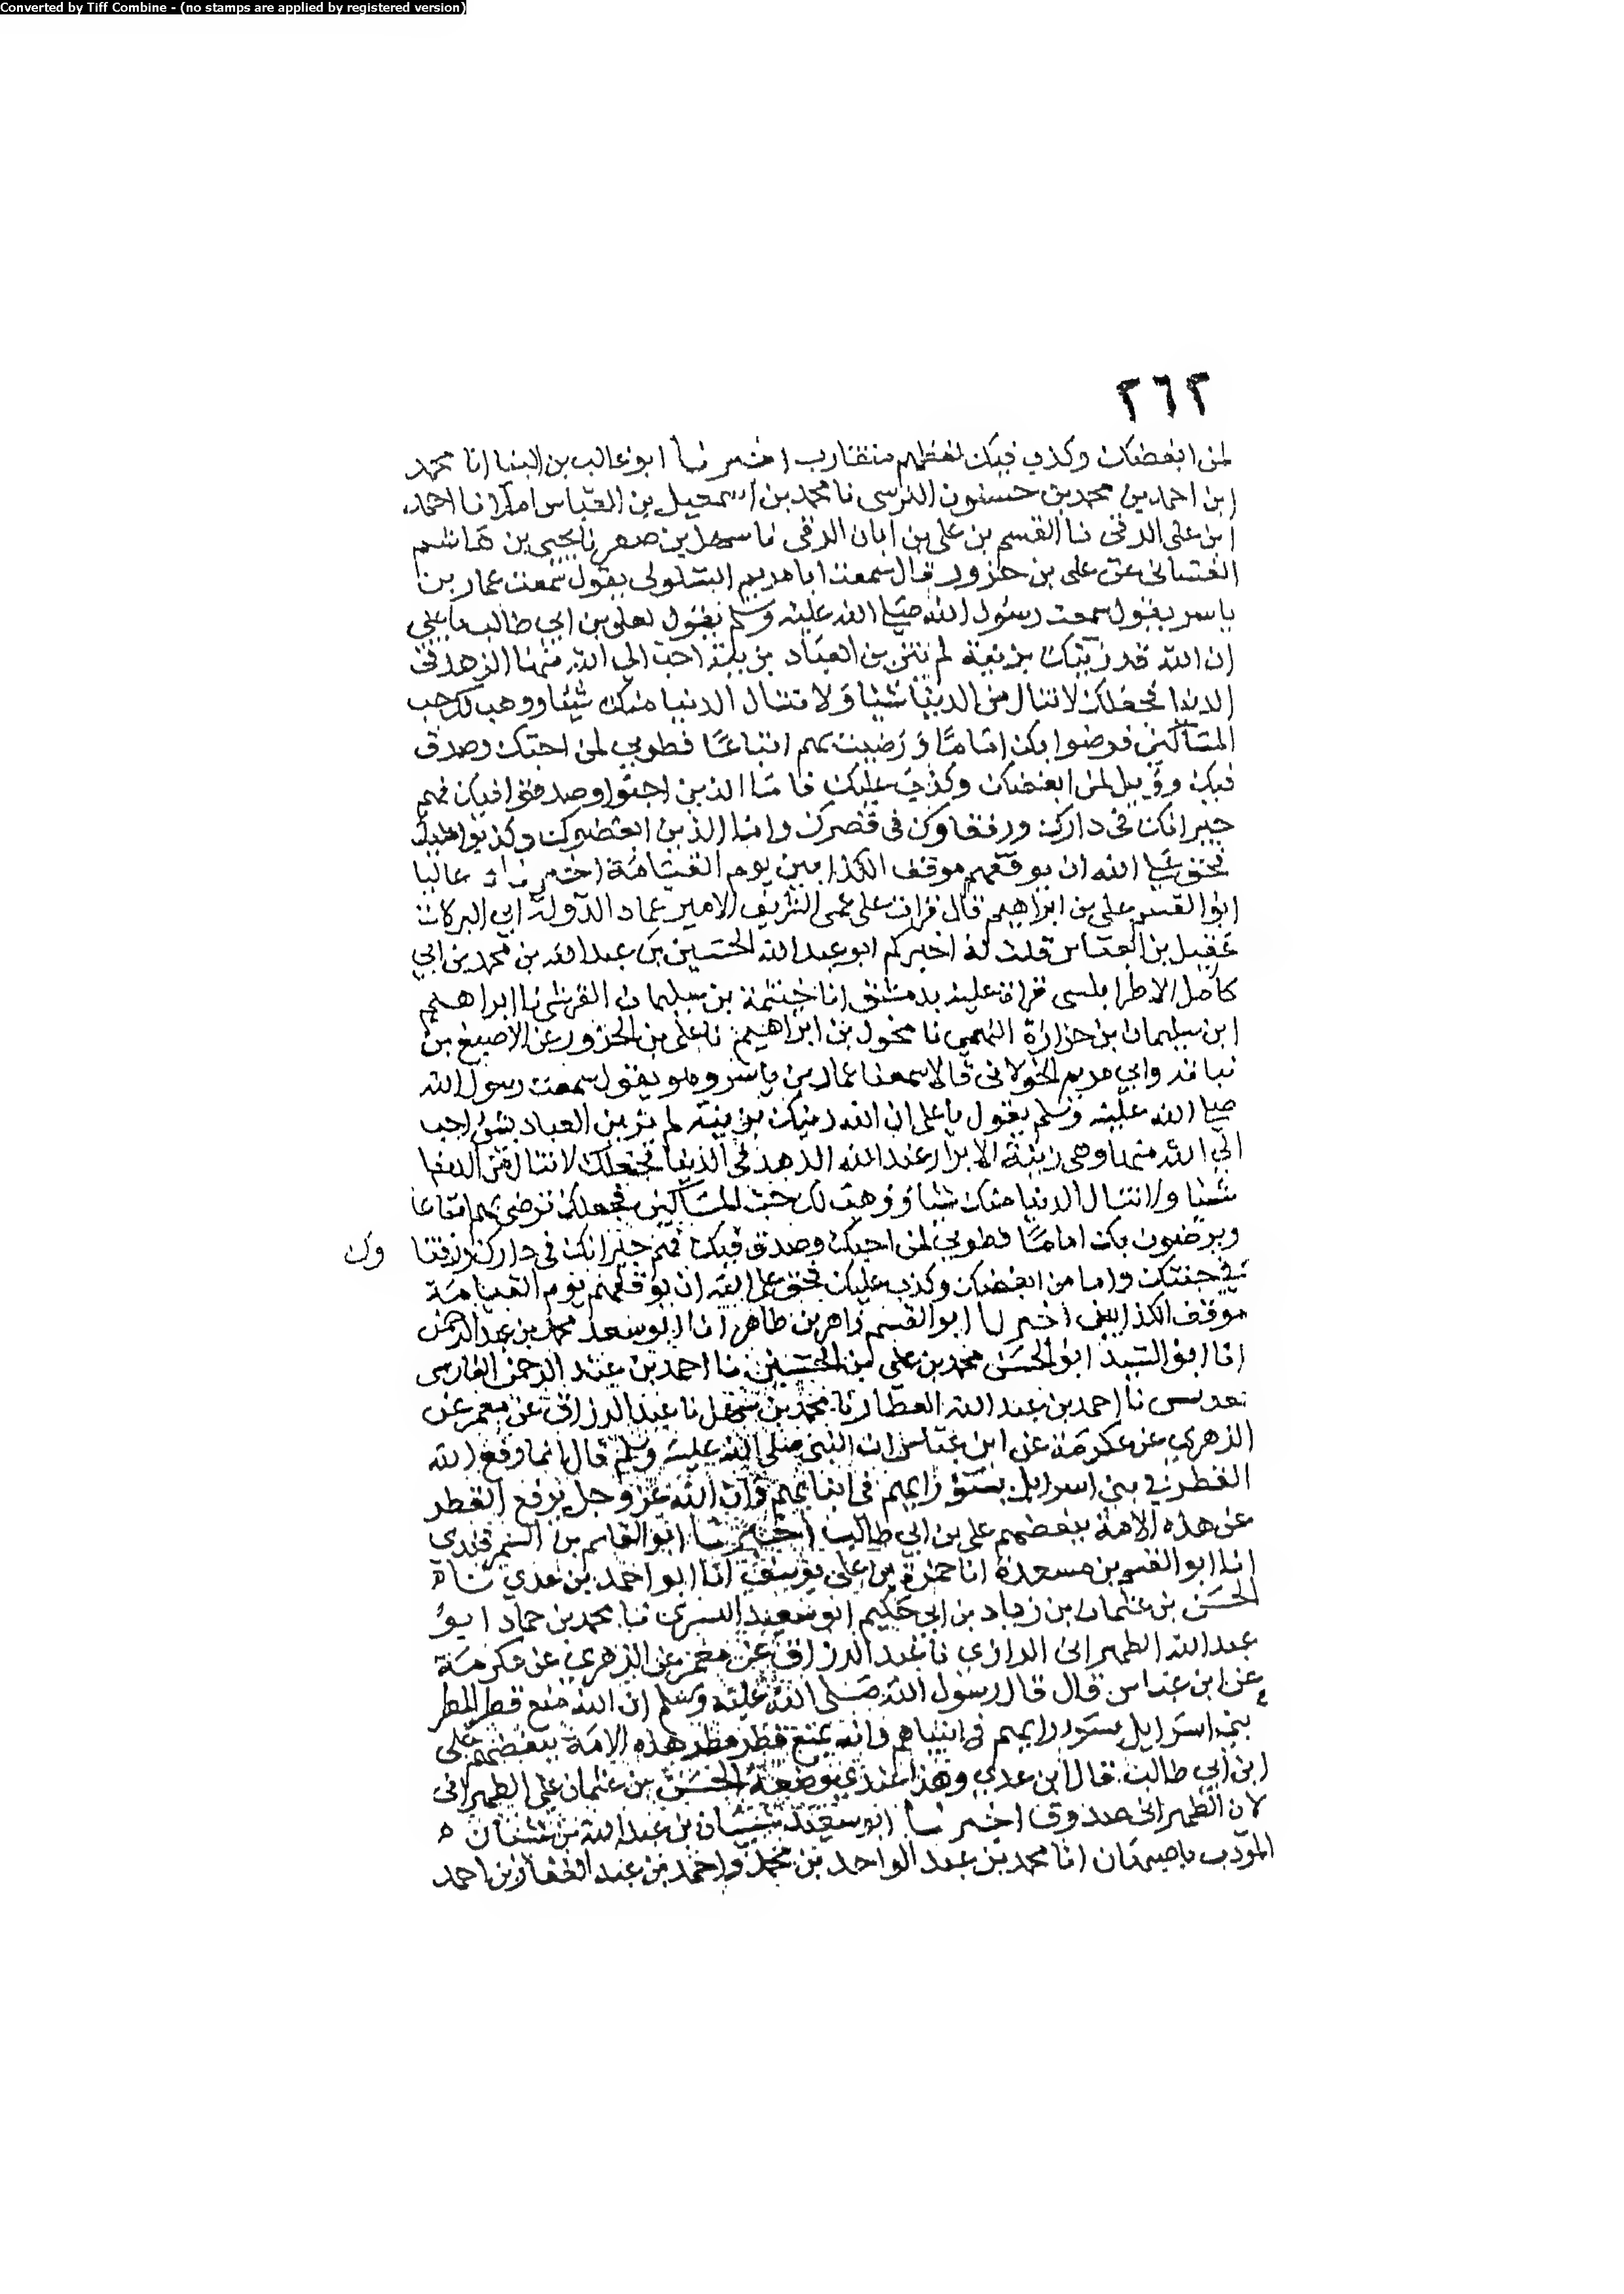 Converted by Tiff Combine - (no stamps are applied by registered version)
٢٦٢
لمن ابغضك وكذب فيك لفظهم متقارب اخبرنا ابو غالب بن البنا انا محمد
ابن احمد بن محمد بن حسنون النرسي نا محمد بن اسمعيل بن العباس املا نا احمد
ابن علي الرقي نا القسم بن علي بن ابان الرقي نا سهل بن صقر نا يحيى بن هاشم
الغساني عن علي بن حزور قال سمعت ابا مريم السلولي يقول سمعت عمار بن
ياسر يقول سمعت رسول الله صلى الله عليه وسلم يقول لعلي بن ابي طالب يا علي
ان الله قد زينك بزينة لم يتزين العباد بزينة احب الى الله منها الزهد في
الدنيا فجعلك لا تنال من الدنيا شيئا ولا تنال الدنيا منك شيئا ووهب لك حب
المساكين فرضوا بك اماما ورضيت بهم اتباعا فطوبى لمن احبك وصدق
فيك وويل لمن ابغضك وكذب عليك فاما الذين احبوا وصدقوا فيك فهم
جيرانك في دارك ورفقاوك في قصرك واما الذين ابغضوك وكذبوا عليك
فحق على الله ان يوقفهم موقف الكذابين يوم القيامة اخبرناه عاليا
ابو القسم علي بن ابراهيم قال قرات على عمي الشريف الامير عماد الدولة ابي البركات
عقيل بن العباس قلت له اخبركم ابو عبد الله الحسين بن عبد الله بن محمد بن ابي
كامل الاطرابلسي قراة عليه بدمشق انا خيثمة بن سليمان القرشي نا ابراهيم
ابن سليمان بن حزازة النهمي نا مخول بن ابراهيم نا علي بن الحزور عن الاصبغ بن
نباته وابي مريم الخولاني قالا سمعنا عمار بن ياسر وهو يقول سمعت رسول الله
صلى الله عليه وسلم يقول يا علي ان الله زينك بزينة لم يزين العباد بشئ احب
الى الله منها وهي زينة الابرار عند الله الزهد في الدنيا فجعلك لا تنال من الدنيا
شيئا ولا تنال الدنيا منك شيئا ووهب لك حب المساكين فجعلك ترضى بهم اتباعا
ويرضون بك اماما فطوبى لمن احبك وصدق فيك فهم جيرانك في دارك ورفقا وك
في جنتك واما من ابغضك وكذب عليك فحق على الله ان يوقفهم يوم القيامة
موقف الكذابين اخبرنا ابو القسم زاهر بن طاهر انا ابو سعد محمد بن عبد الرحمن
انا ابو السيد ابو الحسن محمد بن علي بن الحسين نا احمد بن عبد الرحمن الفارسي
نا احمد بن عبد الله العطار نا محمد بن نا عبد الرزاق عن معمر عن
الزهري عن عكرمة عن ابن عباس ان النبي صلى الله عليه وسلم قال انما رفع الله
القطر في بني اسرايل بسؤ رايهم في انبيايهم وان الله عز وجل يرفع القطر
عن هذه الامة ببغضهم علي بن ابي طالب اخبرنا ابو القاسم بن السمرقندي
انا ابو القسم بن مسعدة انا حمزة بن علي يوسف انا ابو احمد بن عدي نا ه
الحسن بن عثمان بن زياد بن ابي حكيم ابو سعيد التستري نا محمد بن حماد ابو
عبد الله الطهراني الرازي نا عبد الرزاق عن معمر عن الزهري عن عكرمة
عن ابن عباس قال قال رسول الله صلى الله عليه وسلم ان الله منع قطر المطر
بني اسرايل بسور رايهم في انبياهم وانه يمنع قطر مطر هذه الامة ببغضهم علي
ابن ابي طالب قال ابن عدي وهذا عندي وضعه الحسن بن عثمان على الطهراني
لان الطهراني صدوق اخبرنا ابو سعيد شيبان بن عبد الله بن شيبان ه
المؤدب باصبهان انا محمد بن عبد الواحد بن محمد واحمد بن عبد الغفار بن احمد